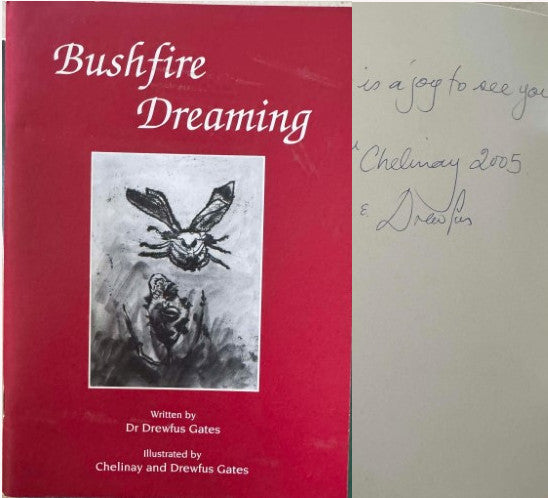 Bushfire
Dreaming
Written by
Dr Drewfus Gates
Illustrated by
Chelinay and Drewfus Gates
is a joy to see you
Chelinay 2005
& Drewfus